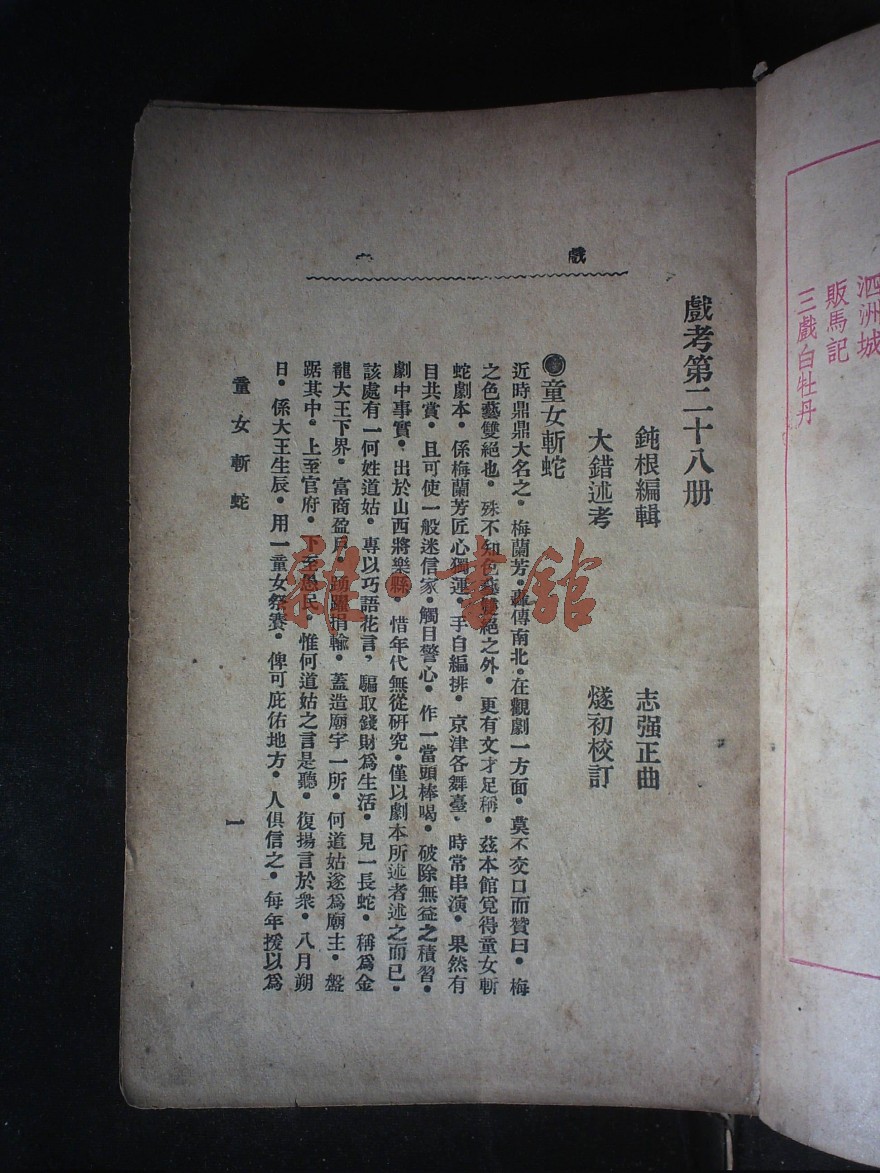 泗洲城
販馬記
三戲白牡丹
戲考第二十八册
鈍根編輯 志强正曲
大錯述考 燧初校訂
童女斬蛇
近時鼎鼎大名之。梅蘭芳。轟傳南北。在觀劇一方面。莫不交口而贊曰。梅
之色藝雙絕也。殊不知色藝雙絕之外。更有文才足稱。茲本館覓得童女斬
蛇劇本。係梅蘭芳匠心獨運。手自編排。京津各舞臺、時常串演。果然有
目共賞。且可使一般迷信家。觸目警心。作一當頭棒喝。破除無益之積習。
劇中事實、出於山西將樂縣。惜年代無從研究。僅以劇本所述者述之而已。
該處有一何姓道姑。專以巧語花言、騙取錢財爲生活。見一長蛇。稱爲金
龍大王下界。富商盈戶。踴躍捐輸。蓋造廟宇一所。何道姑遂爲廟主。盤
踞其中。上至官府。下至愚民。惟何道姑之言是聽。復揚言於衆。八月朔
日。係大王生辰。用一童女祭賽。俾可庇佑地方。人俱信之。每年援以爲
戲
童女斬蛇
一
雜·書館